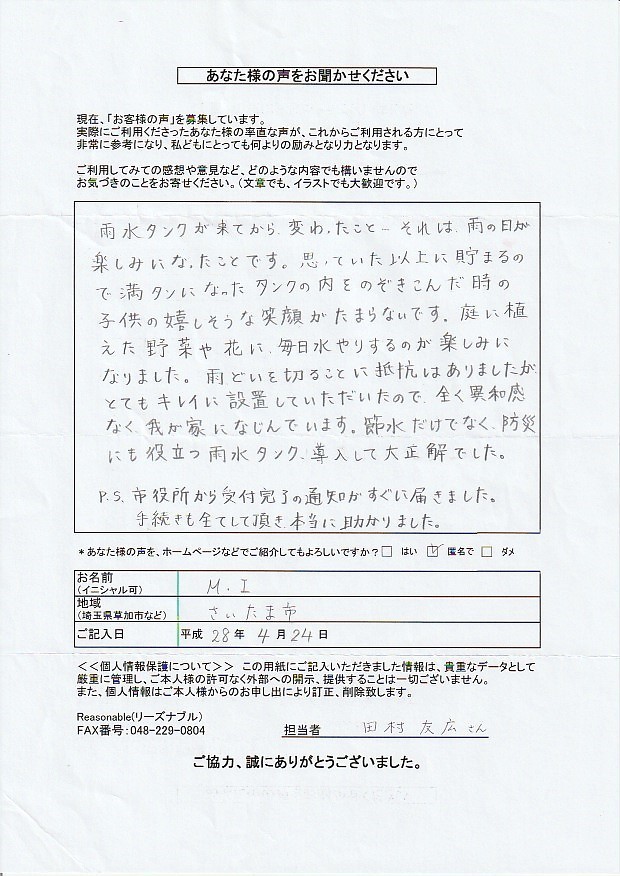 あなた様の声をお聞かせください
現在、「お客様の声」を募集しています。
実際にご利用くださったあなた様の率直な声が、これからご利用される方にとって
非常に参考になり、私どもにとっても何よりの励みとなり力となります。
ご利用してみての感想や意見など、どのような内容でも構いませんので
お気づきのことをお寄せください。(文章でも、イラストでも大歓迎です。)
雨水タンクが来てから、変わったこと… それは、雨の日が
楽しみになったことです。思っていた以上に貯まるの
で満タンになったタンクの内をのぞきこんだ時の
子供の嬉しそうな笑顔がたまらないです。庭に植
えた野菜や花に、毎日水やりするのが楽しみに
なりました。雨どいを切ることに抵抗はありましたが、
とてもキレイに設置していただいたので、全く異和感
なく、我が家になじんでいます。節水だけでなく、防災
にも役立つ雨水タンク、導入して大正解でした。
P.S. 市役所から受付完了の通知がすぐに届きました。
手続きも全てして頂き、本当に助かりました。
*あなた様の声を、ホームページなどでご紹介してもよろしいですか?□ はい ☑ 匿名で □ ダメ
お名前
(イニシャル可) M. I
地域
(埼玉県草加市など) さいたま市
ご記入日 平成 28 年 4 月 24 日
<<個人情報保護について>> この用紙にご記入いただきました情報は、貴重なデータとして
厳重に管理し、ご本人様の許可なく外部への開示、提供することは一切ございません。
また、個人情報はご本人様からのお申し出により訂正、削除致します。
Reasonable(リーズナブル)
FAX番号:048-229-0804 担当者 田村 友広 さん
ご協力、誠にありがとうございました。